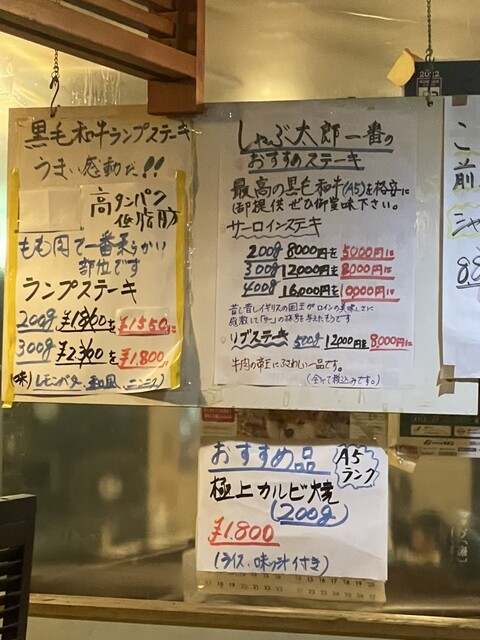 黒毛和牛ランプステーキ
うまい感動だ!!
高タンパク
低脂肪
もも肉で一番柔らかい
部位です
ランプステーキ
200g ¥1800を ¥1550に
300g ¥2300を ¥1.800に
(味) レモンバター・和風・ニンニク
しゃぶ太郎一番の
おすすめステーキ
最高の黒毛和牛(A5)を格安に
御提供 ぜひ御賞味下さい。
サーロインステキ
200g 8000円を 5000円に
300g 12000円を 8000円に
400g 16000円を 10000円に
昔し昔しイギリスの国王がロインの美味しさに
感激して「サー」の称号を与えたそうです
リブステーキ 500g 12000円を 8000円に
牛肉の帝王にふさわしい一品です。
(全て税込みです。)
こ
前
シャ
8.8
2022
おすすめ品
A5
ランク
極上カルビ焼
(200g)
¥1.800
(ライス、味噌汁付き)